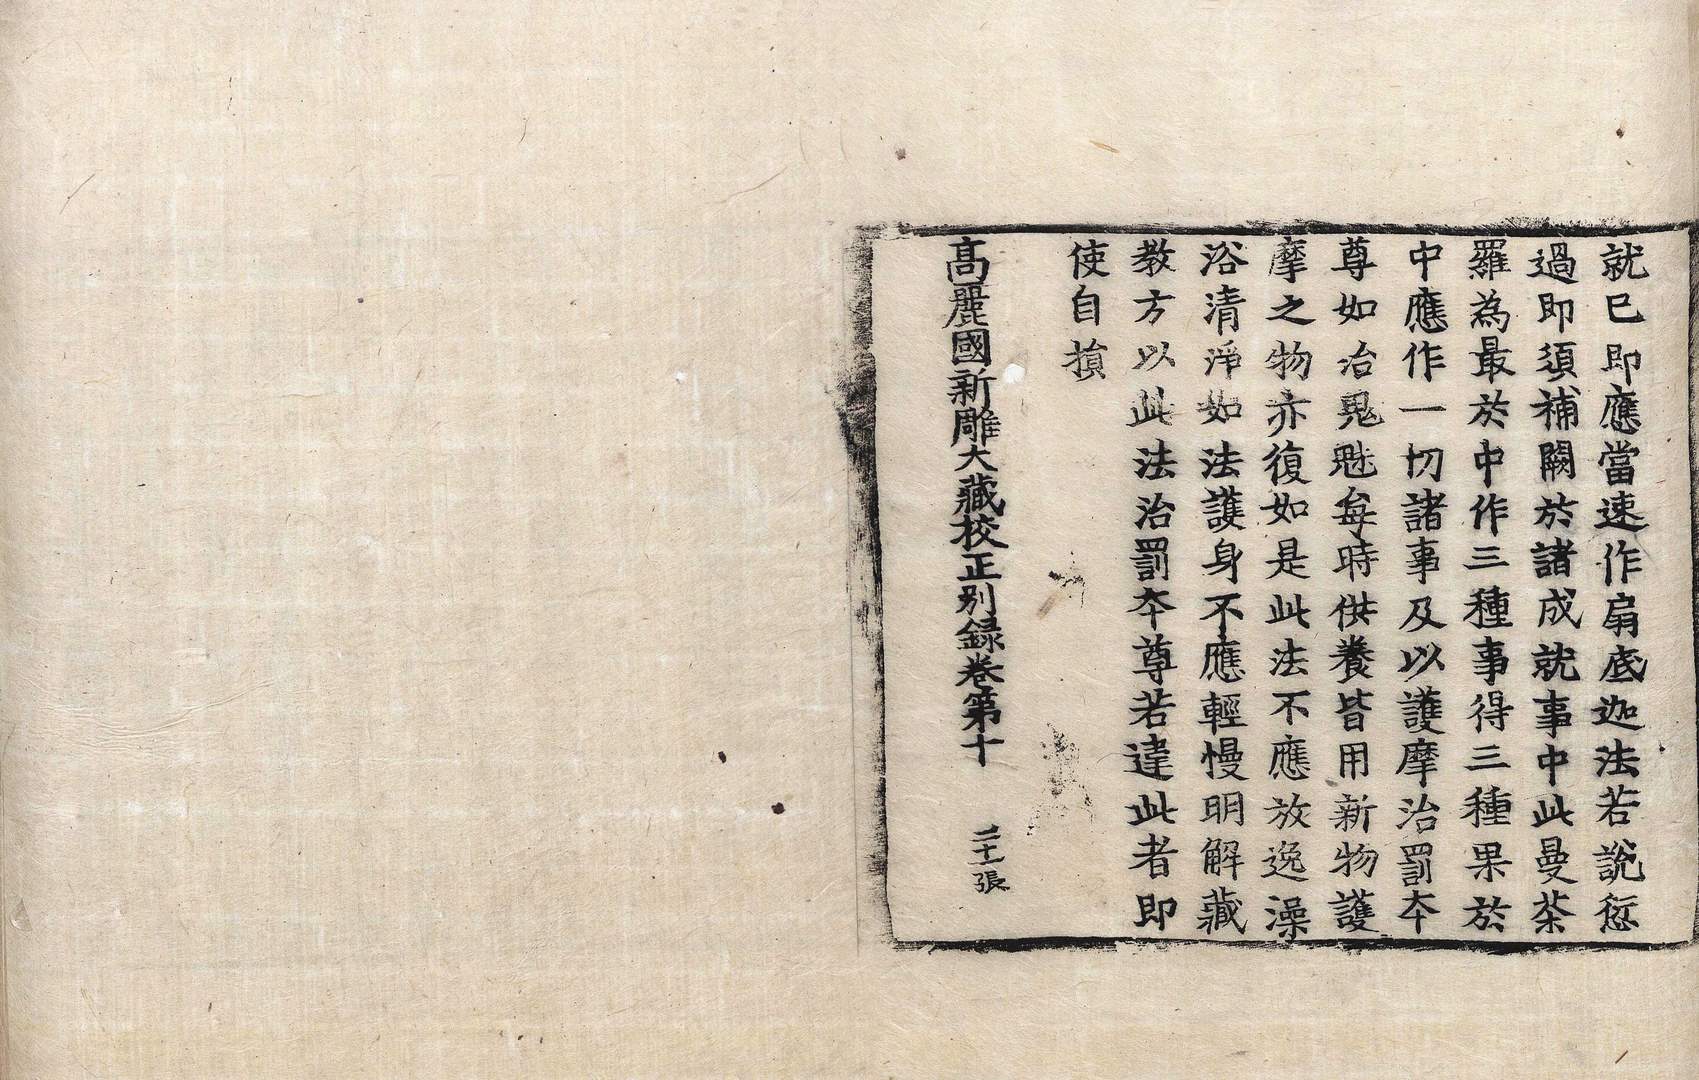 就已即應當速作扇底迦法若說愆
過即須補闕於諸成就事中此曼茶
羅為最於中作三種事得三種果於
中應作一切諸事及以護摩治罰夲
尊如治鬼魅每時供養皆用新物護
摩之物亦復如是此法不應放逸澡
浴清淨如法護身不應輕慢明解藏
教方以此法治罰夲尊若違此者即
使自損
高麗國新雕大藏校正別録卷第十
二十一張